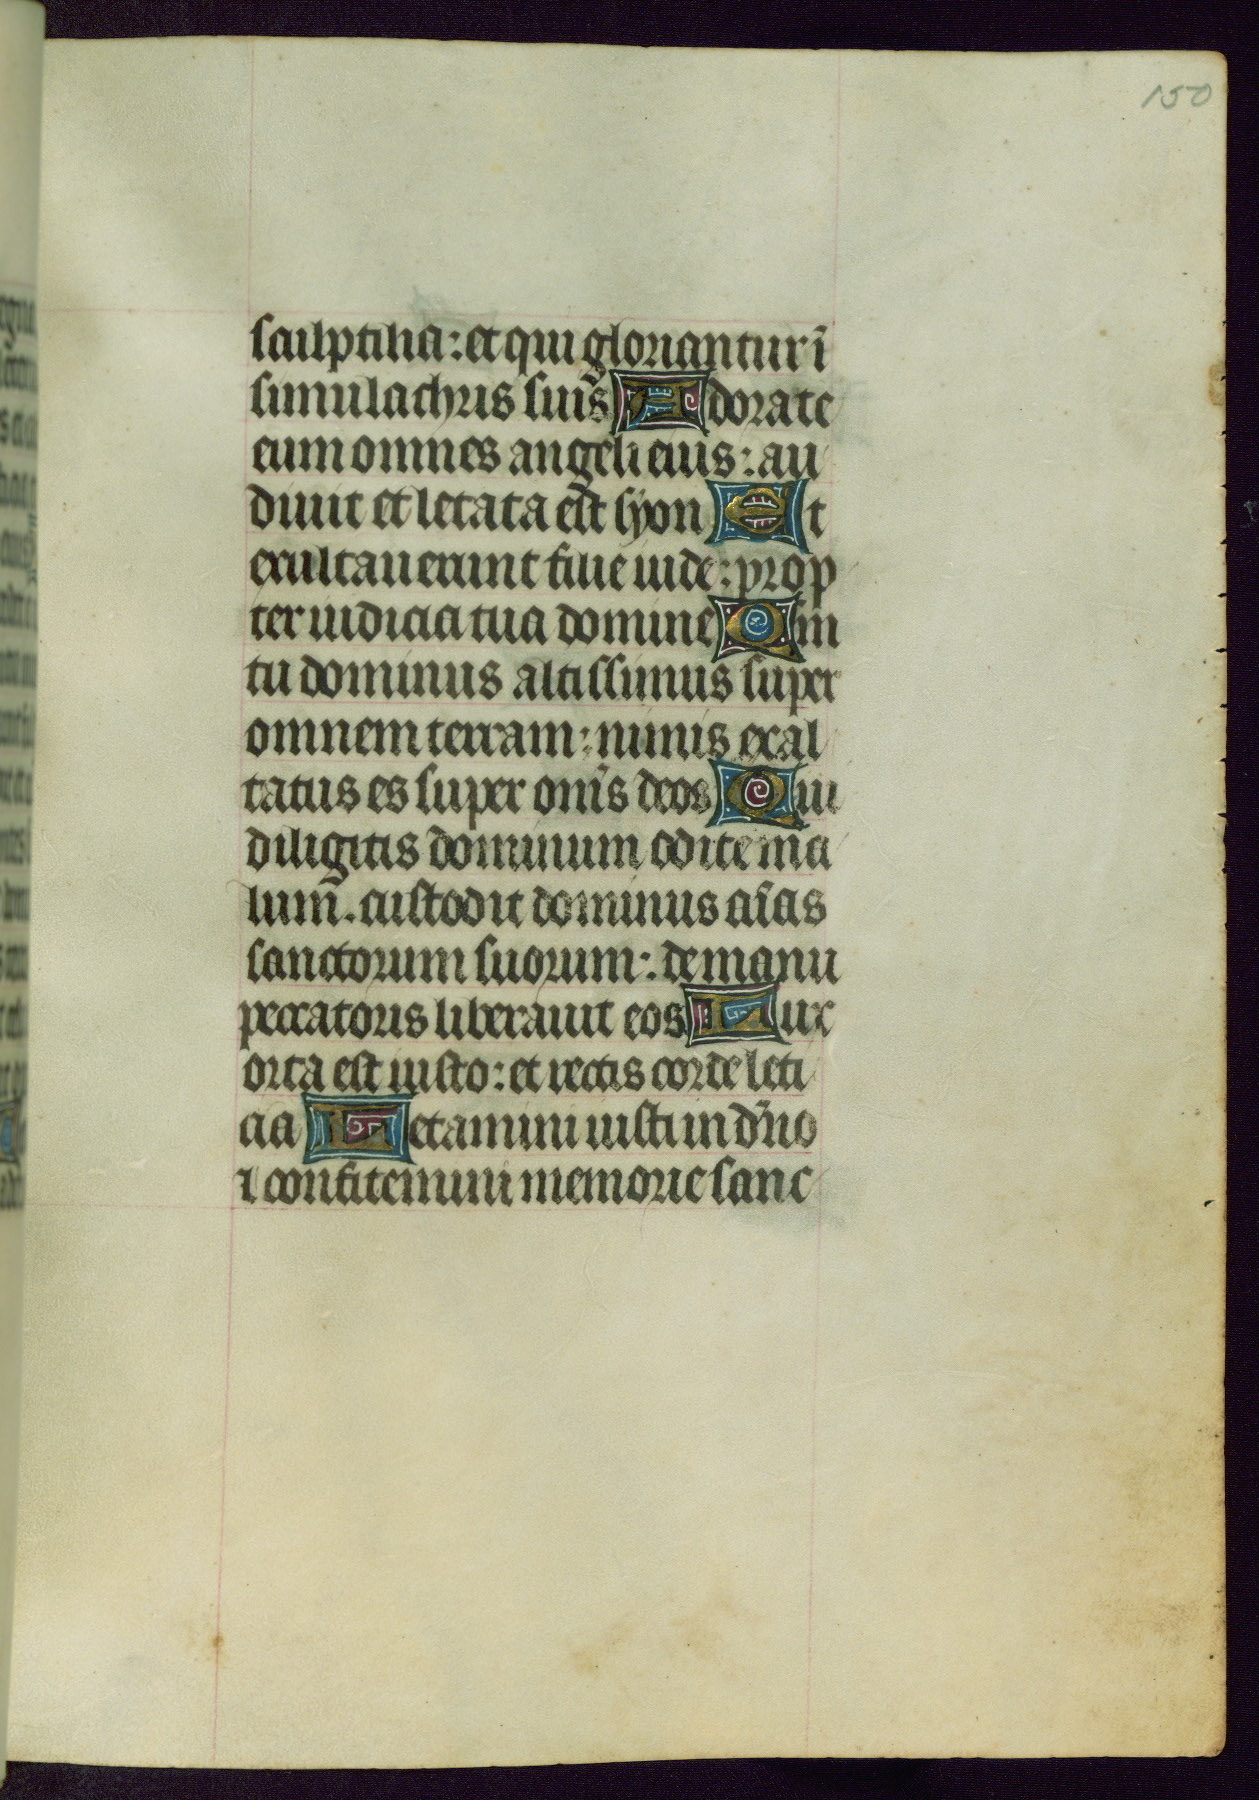 150
sculptilia: et qui gloriantur ī
simulachris suis Adorate
eum omnes angeli eius: au
diuit et letata est syon Et
exultauerunt filie iude: prop
ter iudicia tua domine Qm̄
tu dominus altissimus super
omnem terram: nimis exal
tatus es super om̄s deos Qui
diligitis dominum odite ma
lum̄. custodit dominus aīas
sanctorum suorum: de manu
peccatoris liberauit eos Lux
orta est iusto: et rectis corde leti
cia Letamini iusti in dn̄o
⁊ confitemini memorie sanc